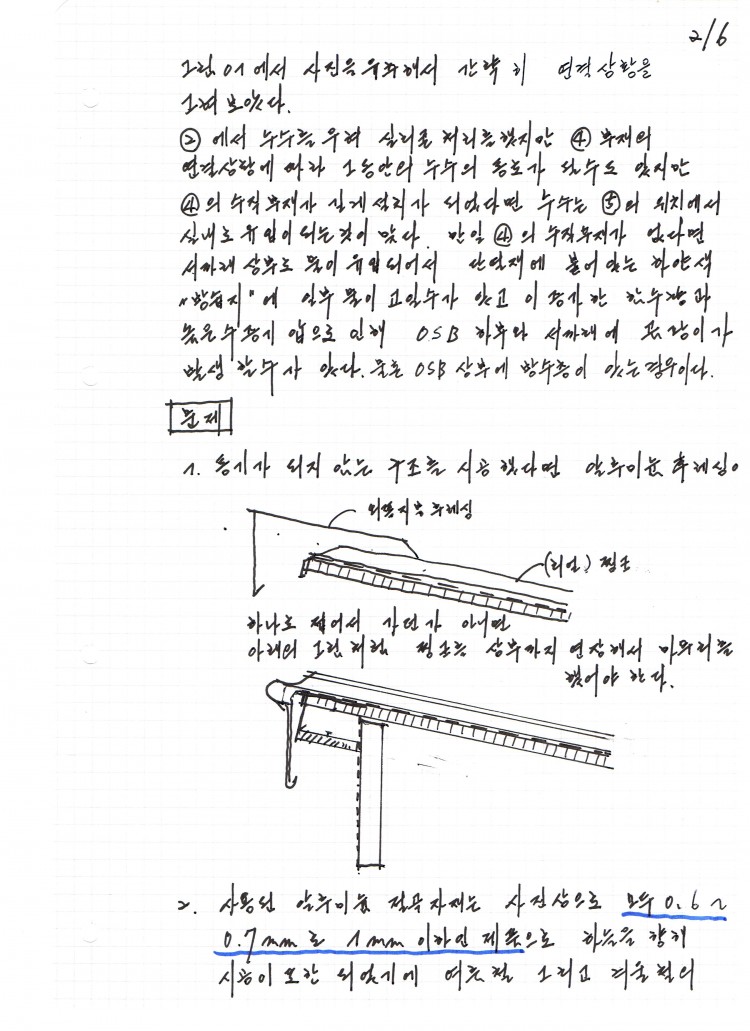 2/6
그림 01 에서 사진을 우회해서 간략히 연결상황을
그려 보았다.
② 에서 누수를 우려 실리콘 처리를 했지만 ④ 부재의
연결상황에 따라 그동안의 누수의 통로가 될수도 있지만
④의 수직부재가 길게 설치가 되었다면 누수는 ⑤의 위치에서
실내로 유입이 되는것이 맞다. 만일 ④의 수직부재가 없다면
서까래 상부로 물이 유입되어서 단열재에 붙어 있는 하얀색
"방습지"에 일부 물이 고일수가 있고 이 증가한 함수량과
높은 수증기 압으로 인해 OSB 하부와 서까래에 곰팡이가
발생 할수가 있다. 물론 OSB 상부에 방수층이 있는 경우이다.
문제
1. 통기가 되지 않는 구조를 시공했다면 알루미늄 후레싱이
외벽지붕 후레싱
(리얼) 징크
하나로 접어서 가던가 아니면
아래의 그림처럼 징크를 상부까지 연장해서 마무리를
했어야 한다.
2. 사용된 알루미늄 절곡자재는 사진상으로 모두 0.6~
0.7mm로 1mm 이하인 제품으로 하늘을 향해
시공이 되었기에 여름철 그리고 겨울철의